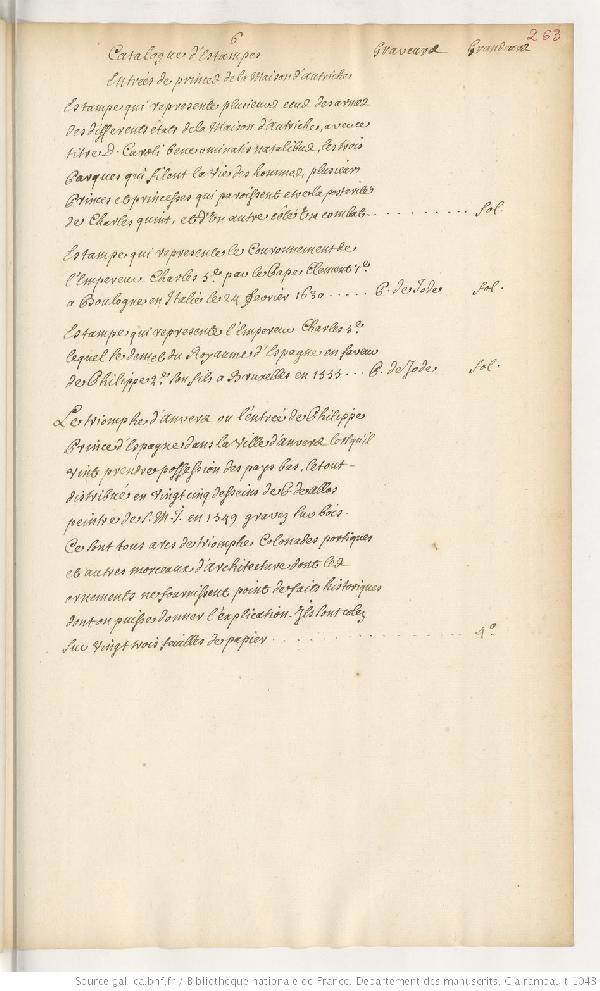 263
6
Catalogue d'Estampes Graveurs Grandeurs
Entrées de princes de la Maison d'autriche
Estampe qui represente plusieurs ecus des armes
des differents états de la Maison d'Autriche, avec ce
titre D. Caroli bene ominatis natalibus, les trois
Parques qui filent la vie des hommes, plusieurs
Princes et princesses qui paroissent etre la posterité
de Charles quint, et d'Un autre côté Un combat.......... fol.
Estampe qui represente le Couronnement de
l'Empereur Charles 5.e par le Pape Clement 7.e
a Boulogne en Italie le 24 fevrier 1630..... P. de Jode fol.
Estampe qui represente l'Empereur Charles 5.e
lequel se demet du Royaume d'Espagne en faveur
de Philippe 2.e son fils a Bruxelles en 1555... P. de Jode fol.
Le triomphe d'anvers ou l'entrée de Philippe
Prince d'Espagne dans la Ville d'anvers lorsqu'il
vint prendre possession des pays bas, le tout
distribué en vingt cinq desseins de P.
peintre de S. M. I. en 1549 gravez sur bois.
Ce sont tous arcs de triomphe Colonades portiques
et autres morceaux d'architecture dont les
ornements ne fournissent point de faits historiques
dont on puisse donner l'explication. Ils sont colez
sur vingt trois feuilles de papier.................. 4.o
Source gallica.bnf.fr / Bibliothèque nationale de France. Département des manuscrits. Clairambault 1048